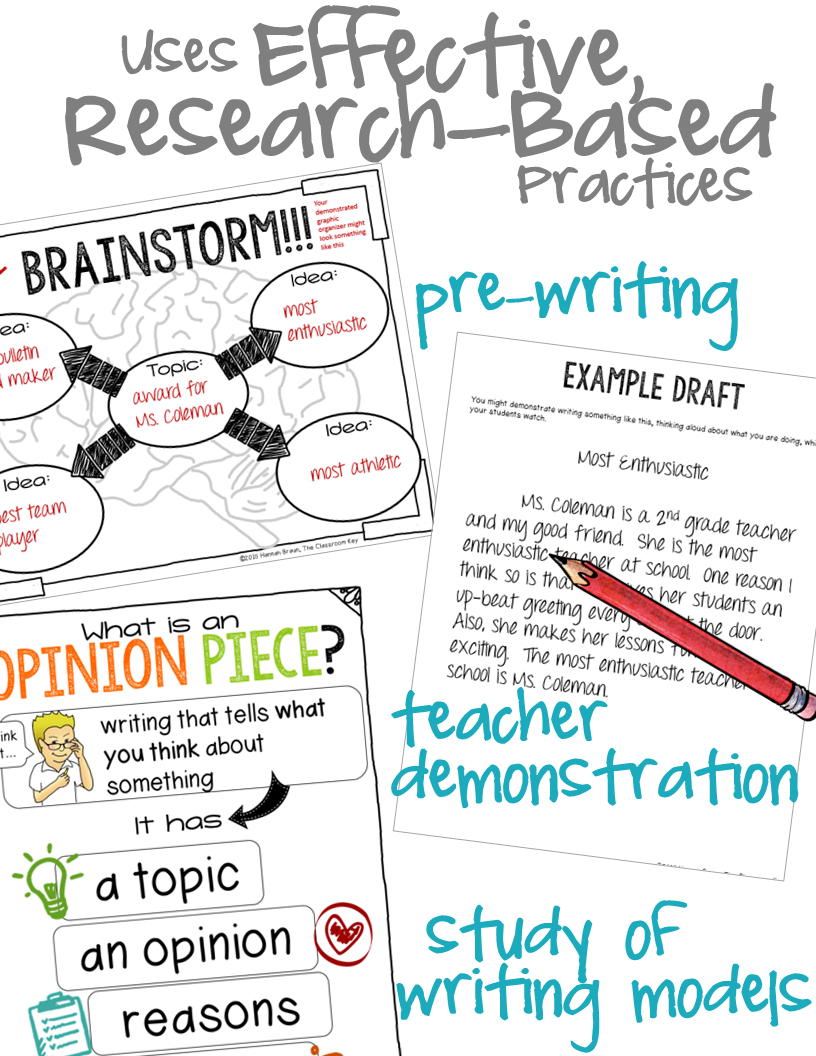 Uses Effective,
Research-Based
Practices
BRAINSTORM!!!
Your
demonstrated
graphic
organizer might
look something
like this
Idea:
most
enthusiastic
Topic:
award for
Ms. Coleman
Idea:
most athletic
Idea:
player
©2015 Hannah Braun, The Classroom Key
pre-writing
EXAMPLE DRAFT
You might demonstrate writing something like this, thinking aloud about what you are doing,
your students watch.
Most Enthusiastic
Ms. Coleman is a 2nd grade teacher
and my good friend. She is the most
enthusiastic teacher at school. One reason I
think so is her students an
up-beat greeting every the door.
Also, she makes her lessons
exciting. The most enthusiastic teacher
school is Ms. Coleman.
teacher
demonstration
What is an
OPINION PIECE?
writing that tells what
you think about
something
It has
a topic
an opinion
reasons
study of
writing models